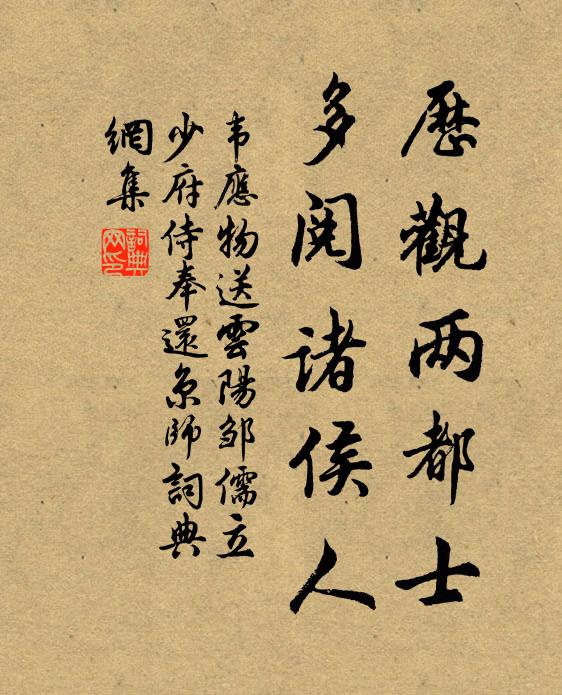 歷觀两都士
多閱諸侯人
韦應物送雲陽邹儒立
少府侍奉還京師詞典
網集
詞典
网印